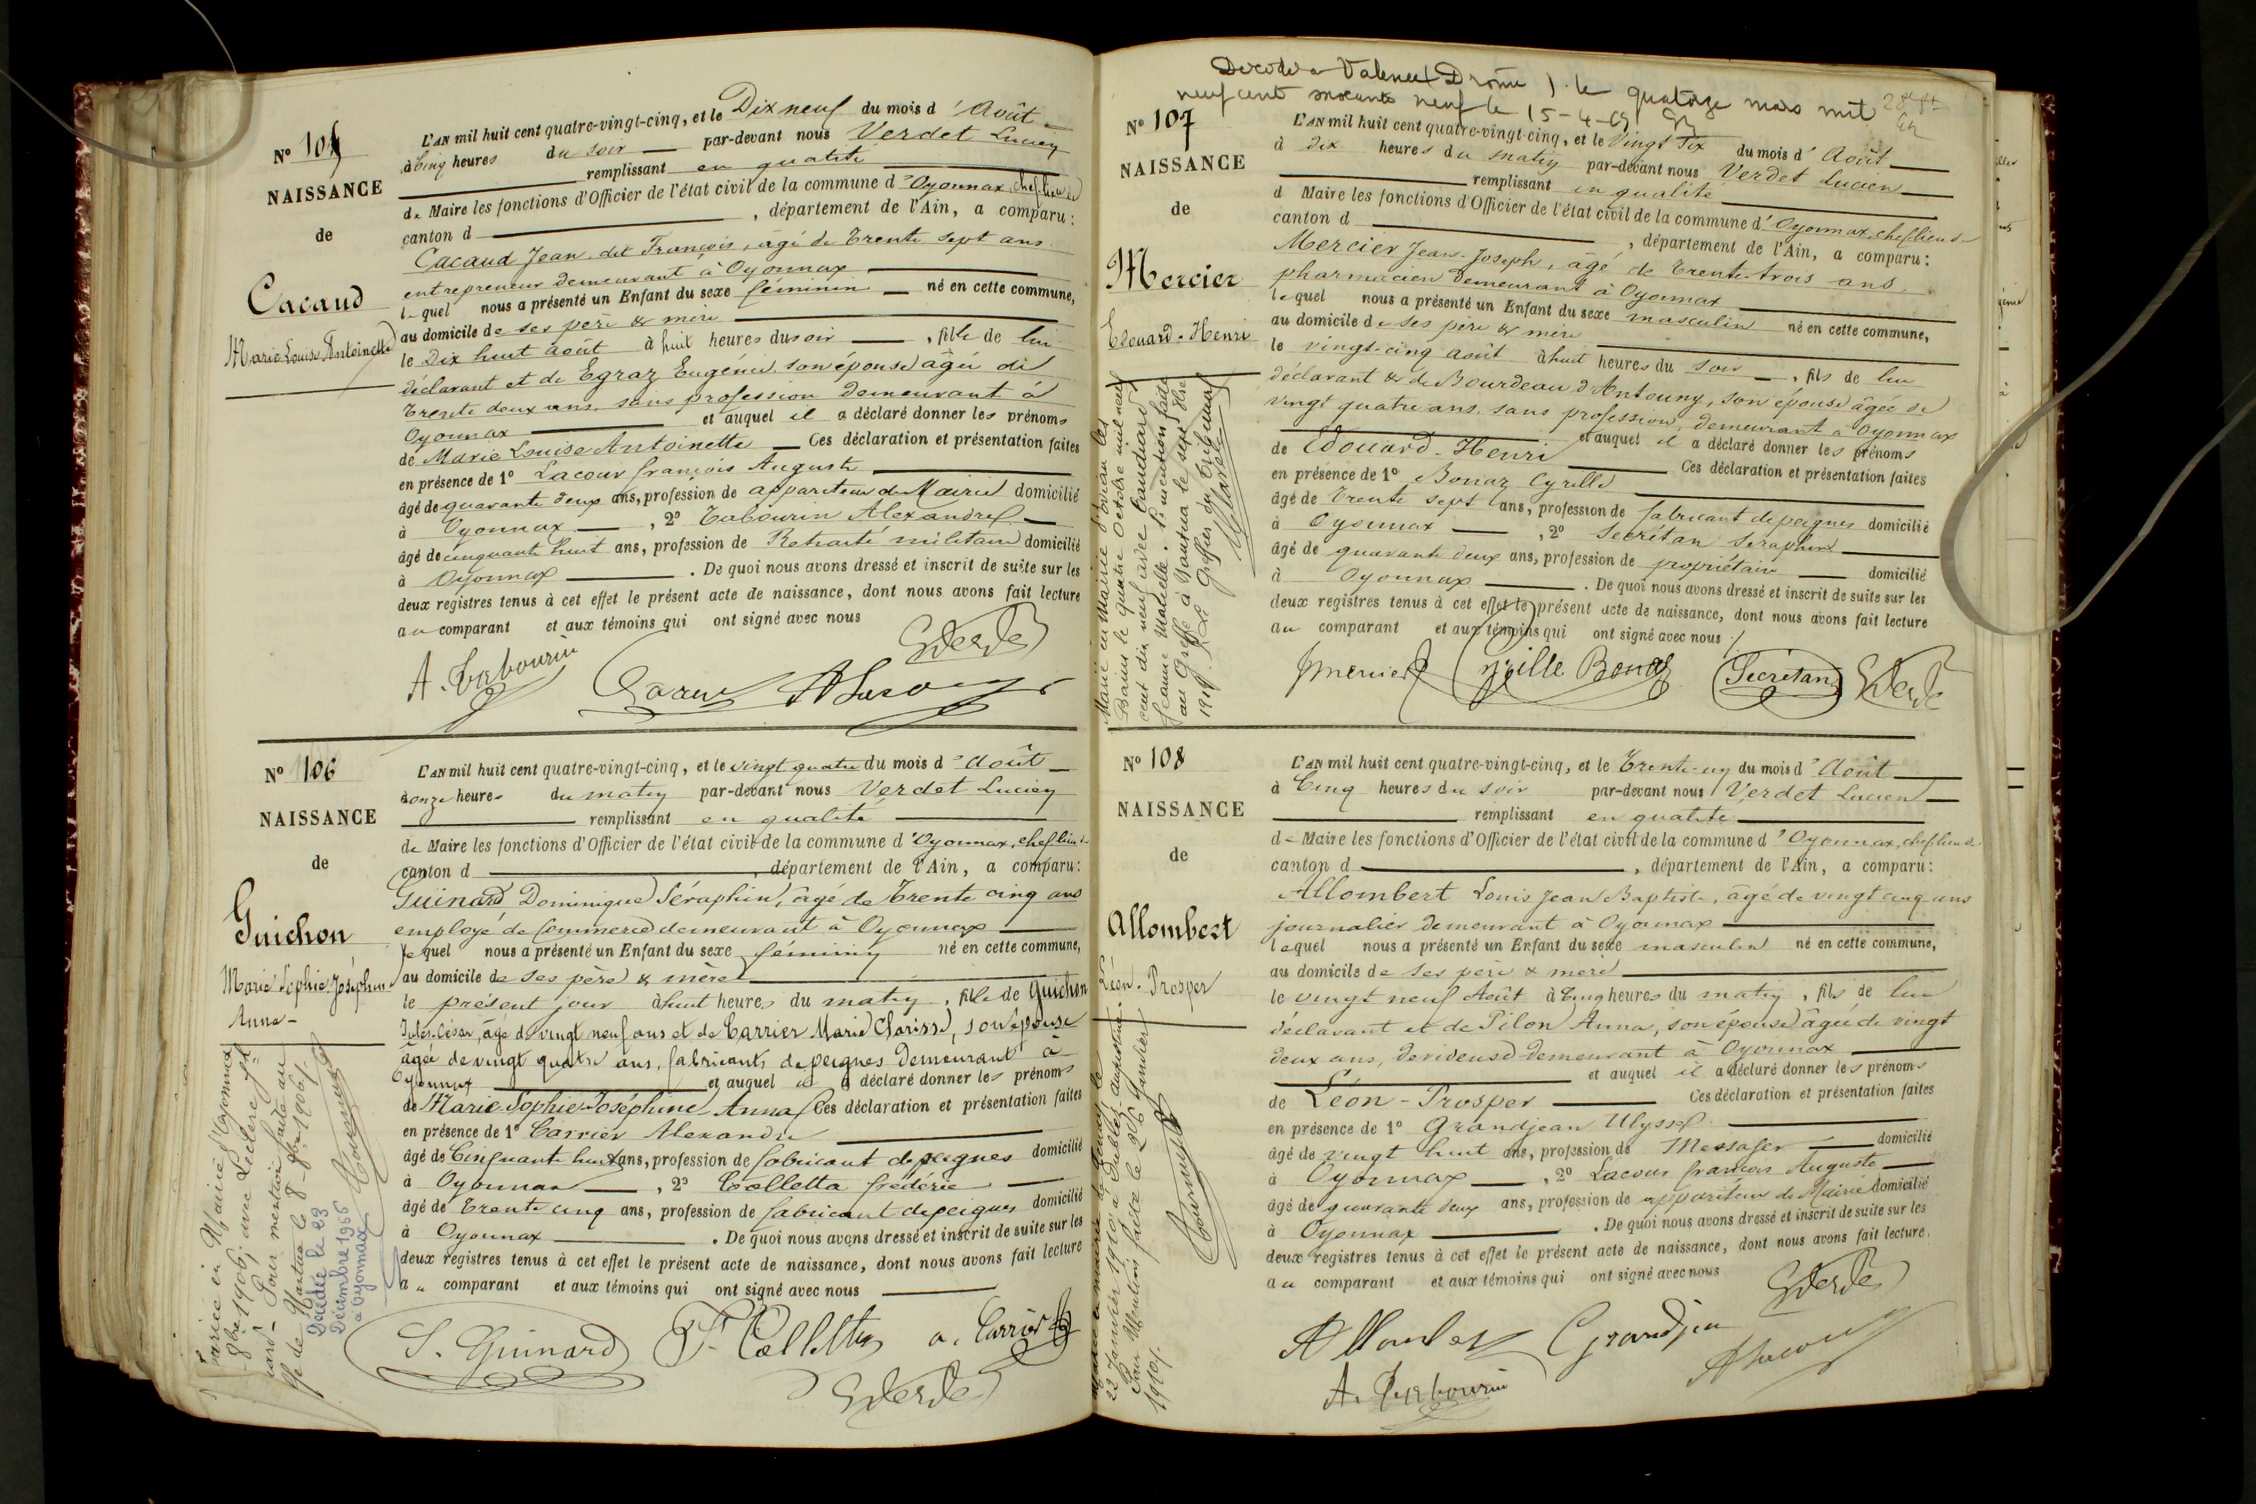 Nº 105
NAISSANCE
de
Cacaud
Marie Louise Antoinette
L'AN mil huit cent quatre-vingt-cinq, et le Dix neuf du mois d'Août
à Cinq heures du soir par-devant nous Verdet Lucien
remplissant en qualité
de Maire les fonctions d'Officier de l'état civil de la commune d'Oyonnax, chef lieu de
canton d , département de l'Ain, a comparu:
Cacaud Jean dit François, âgé de Trente sept ans
entrepreneur demeurant à Oyonnax
lequel nous a présenté un Enfant du sexe féminin né en cette commune,
au domicile de ses père & mère
le Dix huit août à huit heures du soir , fille de lui
déclarant et de Egraz Eugénie, son épouse âgée de
Trente deux ans, sans profession demeurant à
Oyonnax et auquel il a déclaré donner les prénoms
de Marie Louise Antoinette Ces déclaration et présentation faites
en présence de 1º Lacour françois Auguste
âgé de quarante deux ans, profession de appariteur de Mairie domicilié
à Oyonnax , 2º Tabourin Alexandre
âgé de cinquante huit ans, profession de Retraité militaire domicilié
à Oyonnax . De quoi nous avons dressé et inscrit de suite sur les
deux registres tenus à cet effet le présent acte de naissance, dont nous avons fait lecture
au comparant et aux témoins qui ont signé avec nous
A. Tabourin
Nº 106
NAISSANCE
de
Guichon
Marie Sophie Joséphine
Anna
L'AN mil huit cent quatre-vingt-cinq, et le vingt quatre du mois d'Août
à onze heures du matin par-devant nous Verdet Lucien
remplissant en qualité
de Maire les fonctions d'Officier de l'état civil de la commune d'Oyonnax, chef lieu de
canton d , département de l'Ain, a comparu:
Guinard Dominique Séraphin, âgé de Trente cinq ans
employé de Commerce demeurant à Oyonnax
lequel nous a présenté un Enfant du sexe féminin né en cette commune,
au domicile de ses père & mère
le présent jour à huit heures du matin , fille de Guichon
Jules César, âgé de vingt neuf ans et de Carrier Marie Clarisse, son épouse
âgée de vingt quatre ans, fabricants de peignes demeurant à
Oyonnax et auquel il a déclaré donner les prénoms
de Marie-Sophie-Joséphine Anna Ces déclaration et présentation faites
en présence de 1º Carrier Alexandre
âgé de Cinquante huit ans, profession de fabricant de peignes domicilié
à Oyonnax , 2º Colletta frédéric
âgé de Trente cinq ans, profession de fabricant de peignes domicilié
à Oyonnax . De quoi nous avons dressé et inscrit de suite sur les
deux registres tenus à cet effet le présent acte de naissance, dont nous avons fait lecture
au comparant et aux témoins qui ont signé avec nous
S. Guinard F. Colletta a. Carrier
Mariée en Mairie d'Oyonnax
8bre 1906, avec Leclerc
Pour mention faite au
de Nantua le 8 1906
Décédée le 23
Décembre 1966
à Oyonnax
Décédé à Valence (Drôme) le quatorze mars mil
neuf cent soixante neuf le 15-4-69
Nº 107
NAISSANCE
de
Mercier
Edouard-Henri
L'AN mil huit cent quatre-vingt-cinq, et le Vingt six du mois d'Août
à dix heures du matin par-devant nous Verdet Lucien
remplissant en qualité
de Maire les fonctions d'Officier de l'état civil de la commune d'Oyonnax, chef lieu de
canton d , département de l'Ain, a comparu:
Mercier Jean-Joseph, âgé de Trente-trois ans
pharmacien demeurant à Oyonnax
lequel nous a présenté un Enfant du sexe masculin né en cette commune,
au domicile de ses père & mère
le vingt-cinq août à huit heures du soir , fils de lui
déclarant & de Bourdeau d'Antouny, son épouse âgée de
vingt quatre ans, sans profession, demeurant à Oyonnax
et auquel il a déclaré donner les prénoms
de Edouard-Henri Ces déclaration et présentation faites
en présence de 1º Bonaz Cyrille
âgé de Trente sept ans, profession de fabricant de peignes domicilié
à Oyonnax , 2º Secrétan Séraphin
âgé de quarante deux ans, profession de propriétaire domicilié
à Oyonnax . De quoi nous avons dressé et inscrit de suite sur les
deux registres tenus à cet effet le présent acte de naissance, dont nous avons fait lecture
au comparant et aux témoins qui ont signé avec nous
JMercier Cyrille Bonaz Secrétan
Marié en Mairie
Bains le quatre Octobre mil neuf
cent dix neuf avec
Jeanne Marcelle. P. mention faite
au Greffe à Nantua le
1919. Le Greffier du Tribunal
Nº 108
NAISSANCE
de
Allombert
Léon-Prosper
L'AN mil huit cent quatre-vingt-cinq, et le Trente-un du mois d'Août
à Cinq heures du soir par-devant nous Verdet Lucien
remplissant en qualité
de Maire les fonctions d'Officier de l'état civil de la commune d'Oyonnax, chef lieu de
canton d , département de l'Ain, a comparu:
Allombert Louis Jean Baptiste, âgé de vingt cinq ans
journalier demeurant à Oyonnax
lequel nous a présenté un Enfant du sexe masculin né en cette commune,
au domicile de ses père & mère
le vingt neuf Août à Cinq heures du matin , fils de lui
déclarant et de Pilon Anna, son épouse âgée de vingt
deux ans, devideuse demeurant à Oyonnax
et auquel il a déclaré donner les prénoms
de Léon-Prosper Ces déclaration et présentation faites
en présence de 1º Grandjean Ulysse
âgé de vingt huit ans, profession de Messager domicilié
à Oyonnax , 2º Lacour françois Auguste
âgé de quarante deux ans, profession de appariteur de Mairie domicilié
à Oyonnax . De quoi nous avons dressé et inscrit de suite sur les
deux registres tenus à cet effet le présent acte de naissance, dont nous avons fait lecture
au comparant et aux témoins qui ont signé avec nous
Allombert Grandjean
A. Tabourin
22 Janvier 1910
Pour Mention faite le 26 Janvier
1910